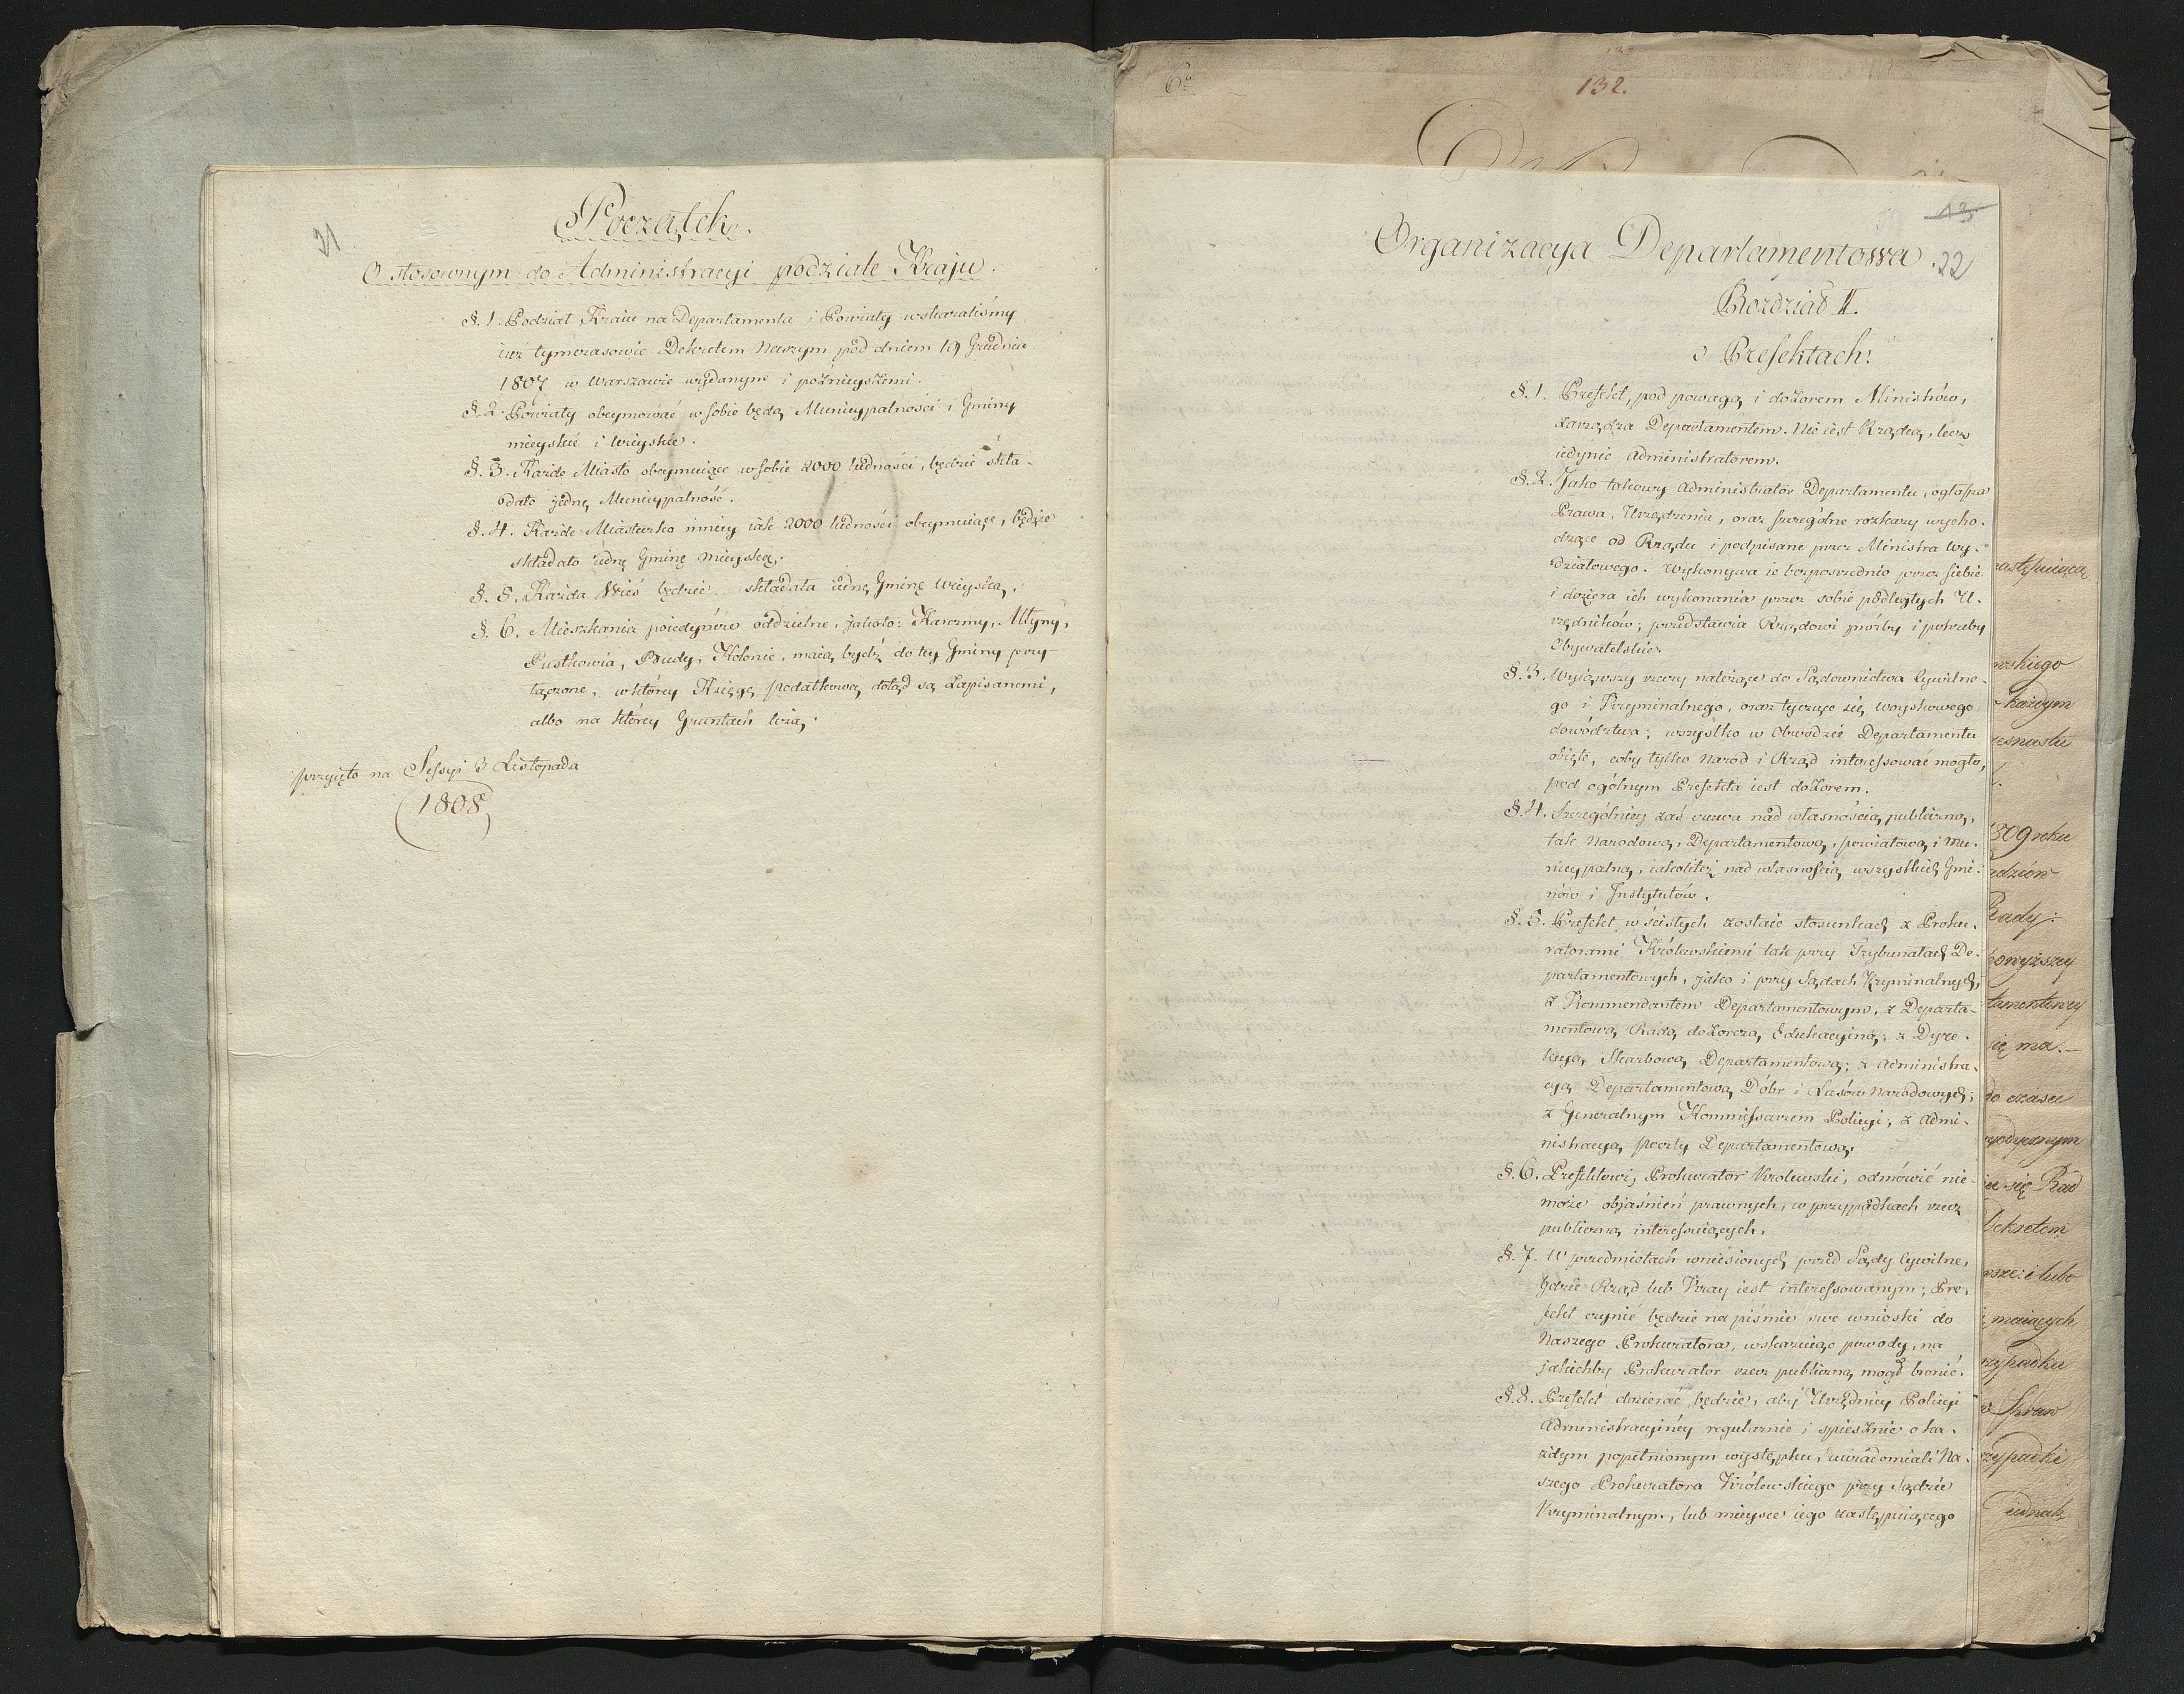 21
Początek.
O stosownym do Administracyi podziale Kraju.
§. 1. Podział Kraiu na Departamenta i Powiaty wskazaliśmy
iuż tymczasowie Dekretem Naszym pod dniem 19 Grudnia
1807 w Warszawie wydanym i poźnieyszemi.
§. 2. Powiaty obeymować w sobie będą Municypalności i Gminy
mieyskie i wieyskie.
§. 3. Każde Miasto obeymuiące w sobie 2000 ludności, będzie skła-
dało jednę Municypalność.
§. 4. Każde Miasteczko mniey iak 2000 ludności obeymuiące, będzie
składało iednę Gminę mieyską.
§. 5. Każda Wieś będzie składała iednę Gminę wieyską.
§. 6. Mieszkania poiedyńcze oddzielne, jakoto: Karczmy, Młyny,
Pustkowia, Budy, Kolonie, maią bydź do tey Gminy przy-
łączone, w którey Księgę podatkową dotąd są zapisanemi,
albo na którey Gruntach leżą.
przyięto na Sessyi 3 Listopada
1808
6o
132.
13
Organizacya Departamentowa.
22
Rozdział II.
o Prefektach.
§. 1. Prefekt, pod powagą i dozorem Ministrów,
zarządza Departamentem. Nie iest Rządcą, lecz
iedynie Administratorem.
§. 2. Jako takowy Administrator Departamentu, ogłasza
Prawa, Urządzenia, oraz szczególne rozkazy wycho-
dzące od Rządu i podpisane przez Ministra Wy-
działowego. Wykonywa ie bezposrzednio przez siebie
i doziera ich wykonania przez sobie podległych U-
rzędników; przedstawia Rządowi prozby i potrzeby
Obywatelskie.
§. 3. Wyiąwszy rzeczy należące do Sądownictwa Cywilne-
go i Kryminalnego, oraz tyczące się woyskowego
dowództwa; wszystko w Obwodzie Departamentu
obięte, coby tylko Narod i Rząd interessować mogło,
pod ogólnym Prefekta iest dozorem.
§. 4. Szczególniey zaś czuwa nad własnością publiczną,
tak Narodową, Departamentową, powiatową i mu-
nicypalną, iakoliteż nad własnością wszystkich Gmi-
nów i Instytutów.
§. 5. Prefekt w ścisłych zostaie stosunkach z Proku-
ratorami Królewskiemi tak przy Trybunałach De-
partamentowych, jako i przy Sądach Kryminalnych,
z Kommendantem Departamentowym, z Departa-
mentową Radą dozorczą Edukacyiną; z Dyre-
kcyą Skarbową Departamentową; z Administra-
cyą Departamentową Dóbr i Lasów Narodowych;
z Generalnym Kommissarzem Policyi, z Admi-
nistracyą poczty Departamentową.
§. 6. Prefektowi, Prokurator Krolewski, odmówić nie
może objaśnień prawnych, w przypadkach rzecz
publiczną interessuiących.
§. 7. W przedmiotach wniesionych przed Sądy Cywilne,
gdzie Rząd lub Kray iest interessowanym; Pre-
fekt czynić będzie na piśmie swe wnioski do
Naszego Prokuratora, wskazuiąc powody, na
jakichby Prokurator rzecz publiczną mogł bronić.
§. 8. Prefekt dozierać będzie, aby Urzędnicy Policyi
Administracyiney regularnie i spiesznie o ka-
żdym popełnionym występku, uwiadomiali Na-
szego Prokuratora Królewskiego przy Sądzie
Kryminalnym, lub mieysce iego zastępuiącego
1809 roku
Rady:
powyższey
się ma.
do czasu
Dekretem
maiących
przypadku
Spraw
przypadki
iednak